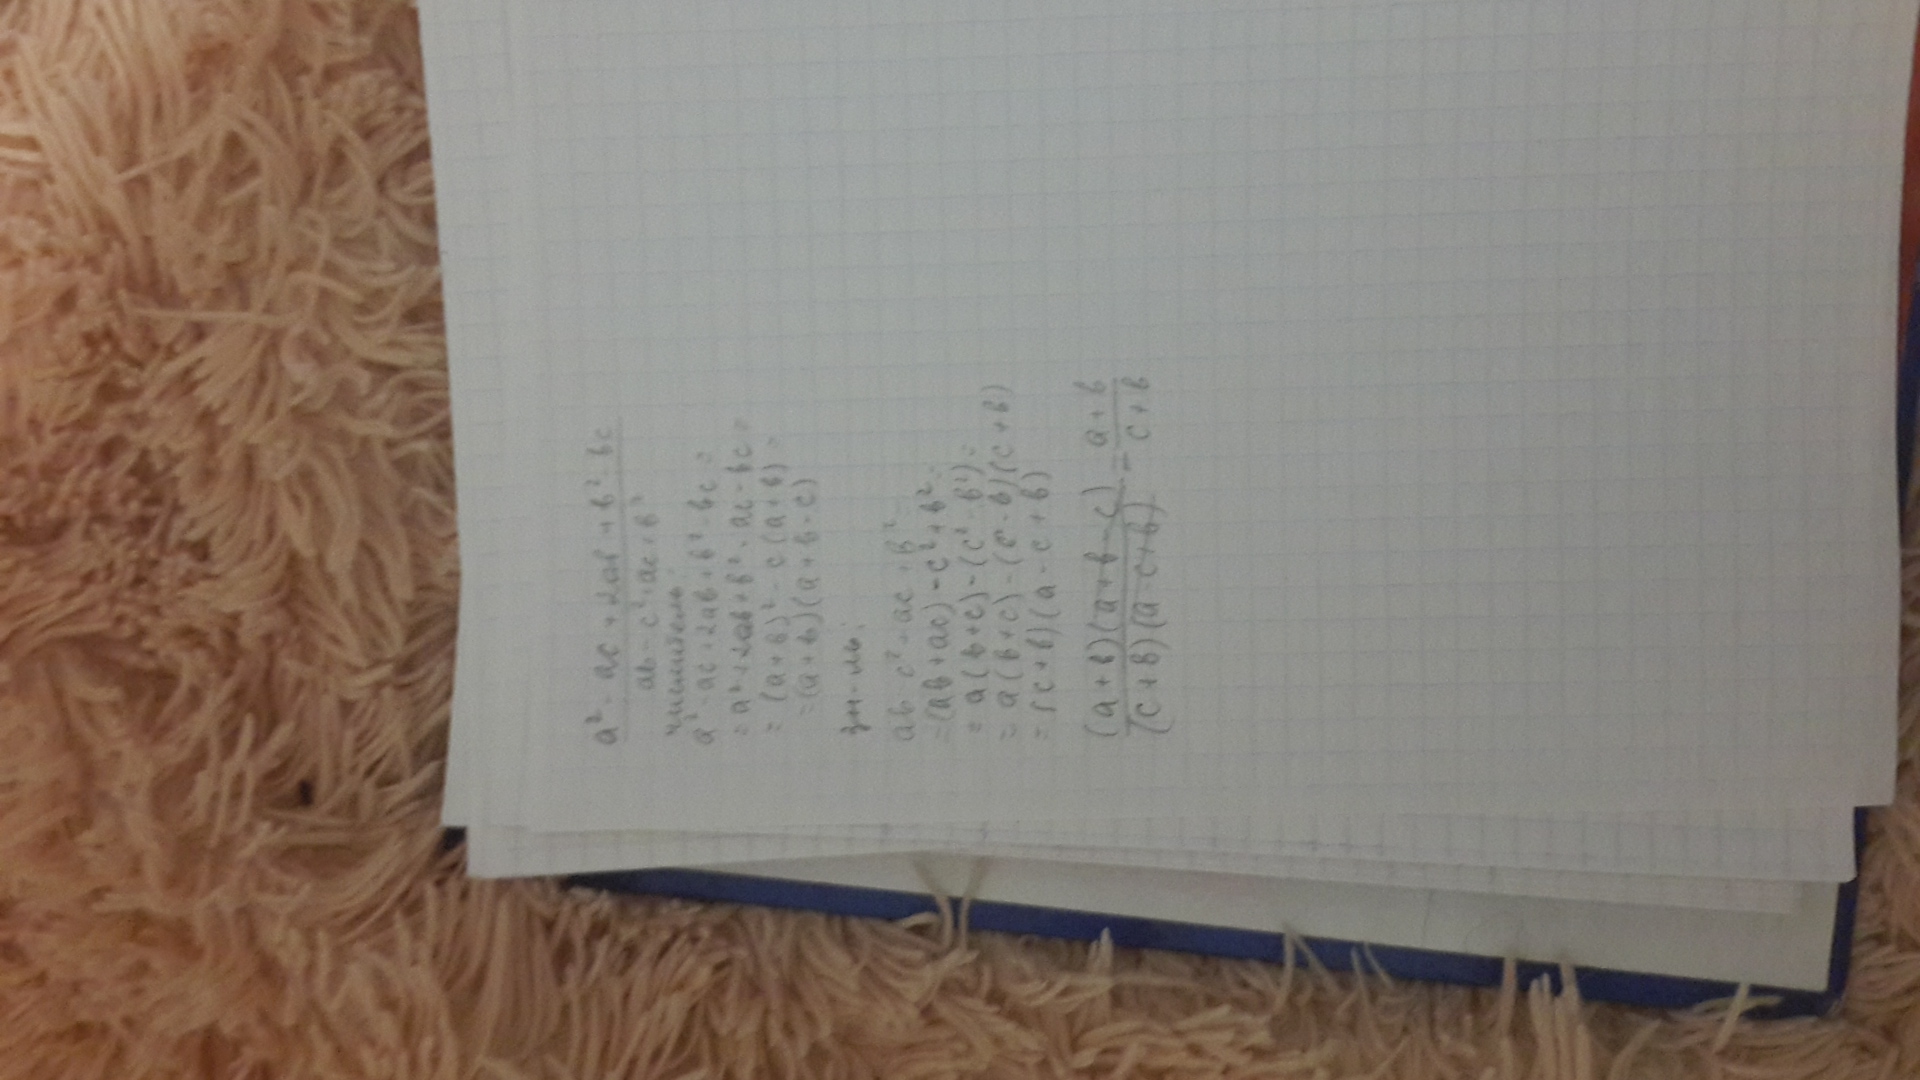 a² - ac + 2ab + b² - bc
ab - c² + ac + b²
числитель:
a² - ac + 2ab + b² - bc =
= a² + 2ab + b² - ac - bc =
= (a + b)² - c (a + b) =
= (a + b) (a + b - c)
зн-ль:
ab - c² + ac + b² =
= (ab + ac) - c² + b² =
= a (b + c) - (c² - b²) =
= a (b + c) - (c - b) (c + b)
= (c + b) (a - c + b)
(a + b) (a + b - c) = a + b
(c + b) (a - c + b) c + b